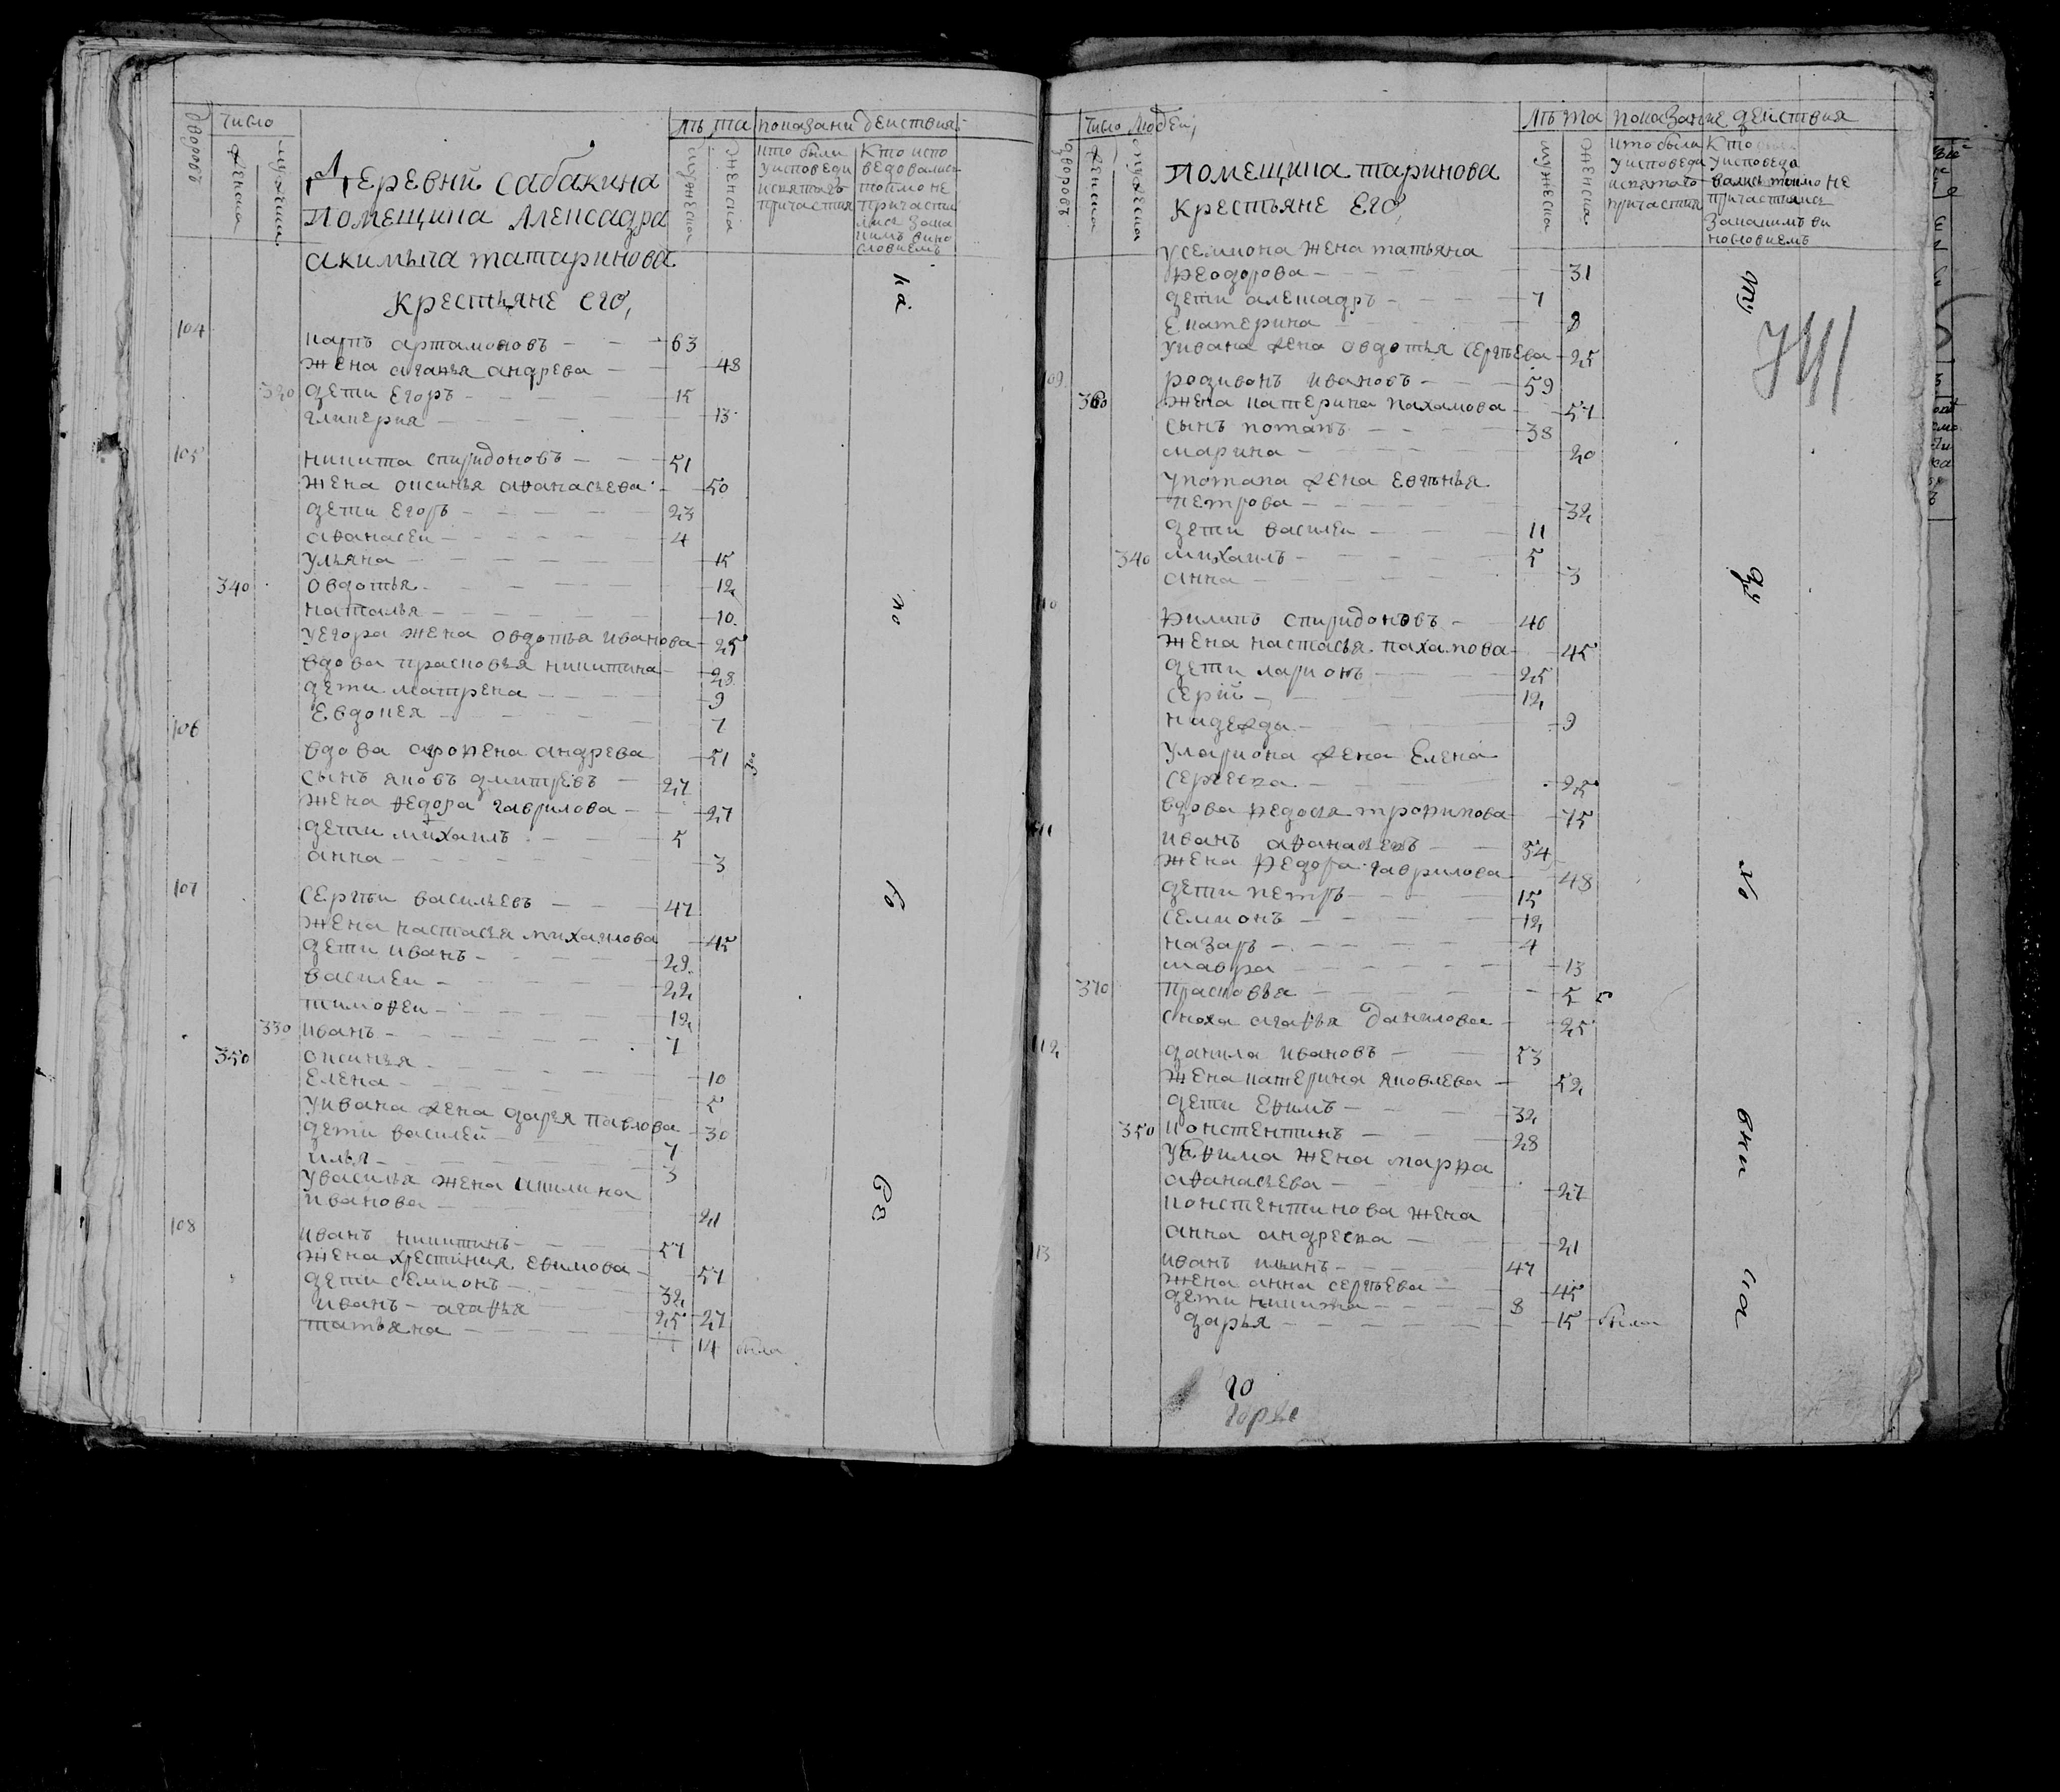 дворовъ
число
женска
мужеска
лѣта
показани действия
мужеска
женска
кто были
у исповеди
и святаго
причастия
кто испо
ведовалися
токмо не
причасти
лися за ка
кимъ вино
словиемъ
Деревни сабакина
помещика Алексадра
акимыча татаринова
крестьяне его,
104
карпъ артамоновъ 63
жена агафья андрева 48
330 дети егоръ 15
гликерия 13
105
никита спиридоновъ 51
жена оксинья афанасьева 50
дети егоръ 23
афанасеи 4
ульяна 15
340 овдотья 12
наталья 10
у егора жена овдотья иванова 25
вдова прасковья никитина 28
дети матрена 9
Евдокея 7
106
вдова афрофена андрева 51
сынъ яковъ дмитревъ 27
жена федора гаврилова 27
дети михаилъ 5
анна 3
107
сергѣи васильевъ 47
жена настасья михаилова 45
дети иванъ 29
василеи 22
тимофеи 12
330 иванъ 7
350 оксинья
елена 10
5
у ивана жена дарья павлова 30
дети василей 7
илья 3
у василья жена акилина
иванова 21
108
иванъ никитинъ 57
жена хрестиния ефимова 57
дети семионъ 32
иванъ агафья 25 27
татьяна 14 была
на
по
го
число людей,
дворовъ
женска
мужеска
лѣта
показание действия
мужеска
женска
кто были
у исповеди
и святаго
причастия
кто
у исповеда
вались токмо не
причастились
за какимъ ви
новловиемъ
помещика таринова
крестьяне его,
у семиона жена татьяна
феодорова 31
дети алексадръ 7
екатерина 8
у ивана жена овдотья сергѣева 25
109
родивонъ ивановъ 59
360 жена катерина пахамова 57
сынъ потапъ 38
марина 20
у потапа жена евгѣнья
петрова 32
дети василеи 11
340 михаилъ 5
анна 3
110
филипъ спиридоновъ 46
жена настасья пахамова 45
дети ларионъ 25
сергій 12
надежда 9
у лариона жена Елена
сергеева 25
вдова федосья трофимова 75
111
иванъ афанасьевъ 54
жена федора гаврилова 48
дети петръ 15
семионъ 12
назаръ 4
мавра 13
370 прасковья 5
сноха агафья данилова 25
112
данила ивановъ 53
жена катерина яковлева 52
дети ефимъ 32
350 констентинъ 28
у ефима жена марфа
афанасьева 27
констентинова жена
анна андреева 21
113
иванъ ильинъ 47
жена анна сергѣева 45
дети никита 8
дарья 15 были
ду
хо
вни
ка